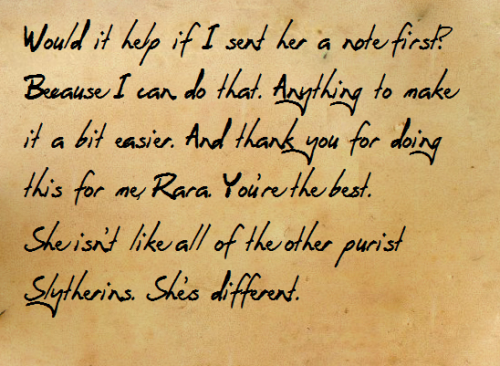 Would it help if I sent her a note first?
Because I can do that. Anything to make
it a bit easier. And thank you for doing
this for me, Rara. You're the best.
She isn't like all of the other purist
Slytherins. She's different.